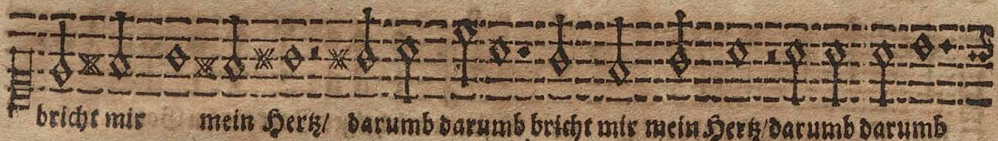 bricht mir mein Hertz/ darumb darumb bricht mir mein Hertz/darumb darumb